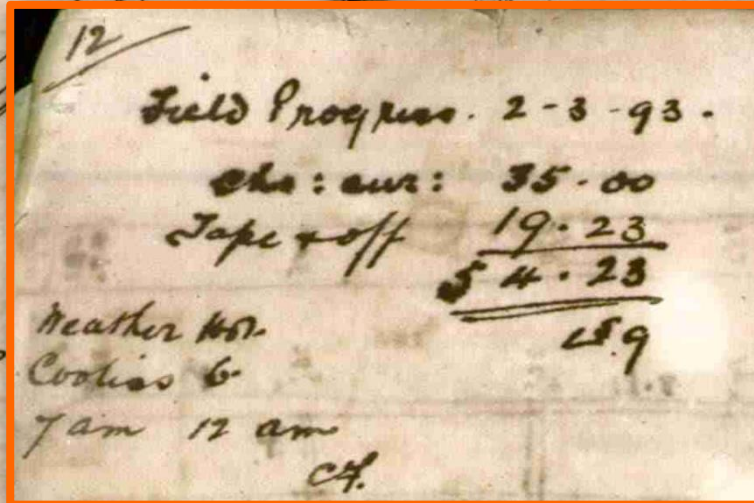 12
Field Progress. 2-3-93.
chs: cur: 35.00
Tape & off 19.23
54.23
Weather Hot.
Coolies 6.
7 am 12 am